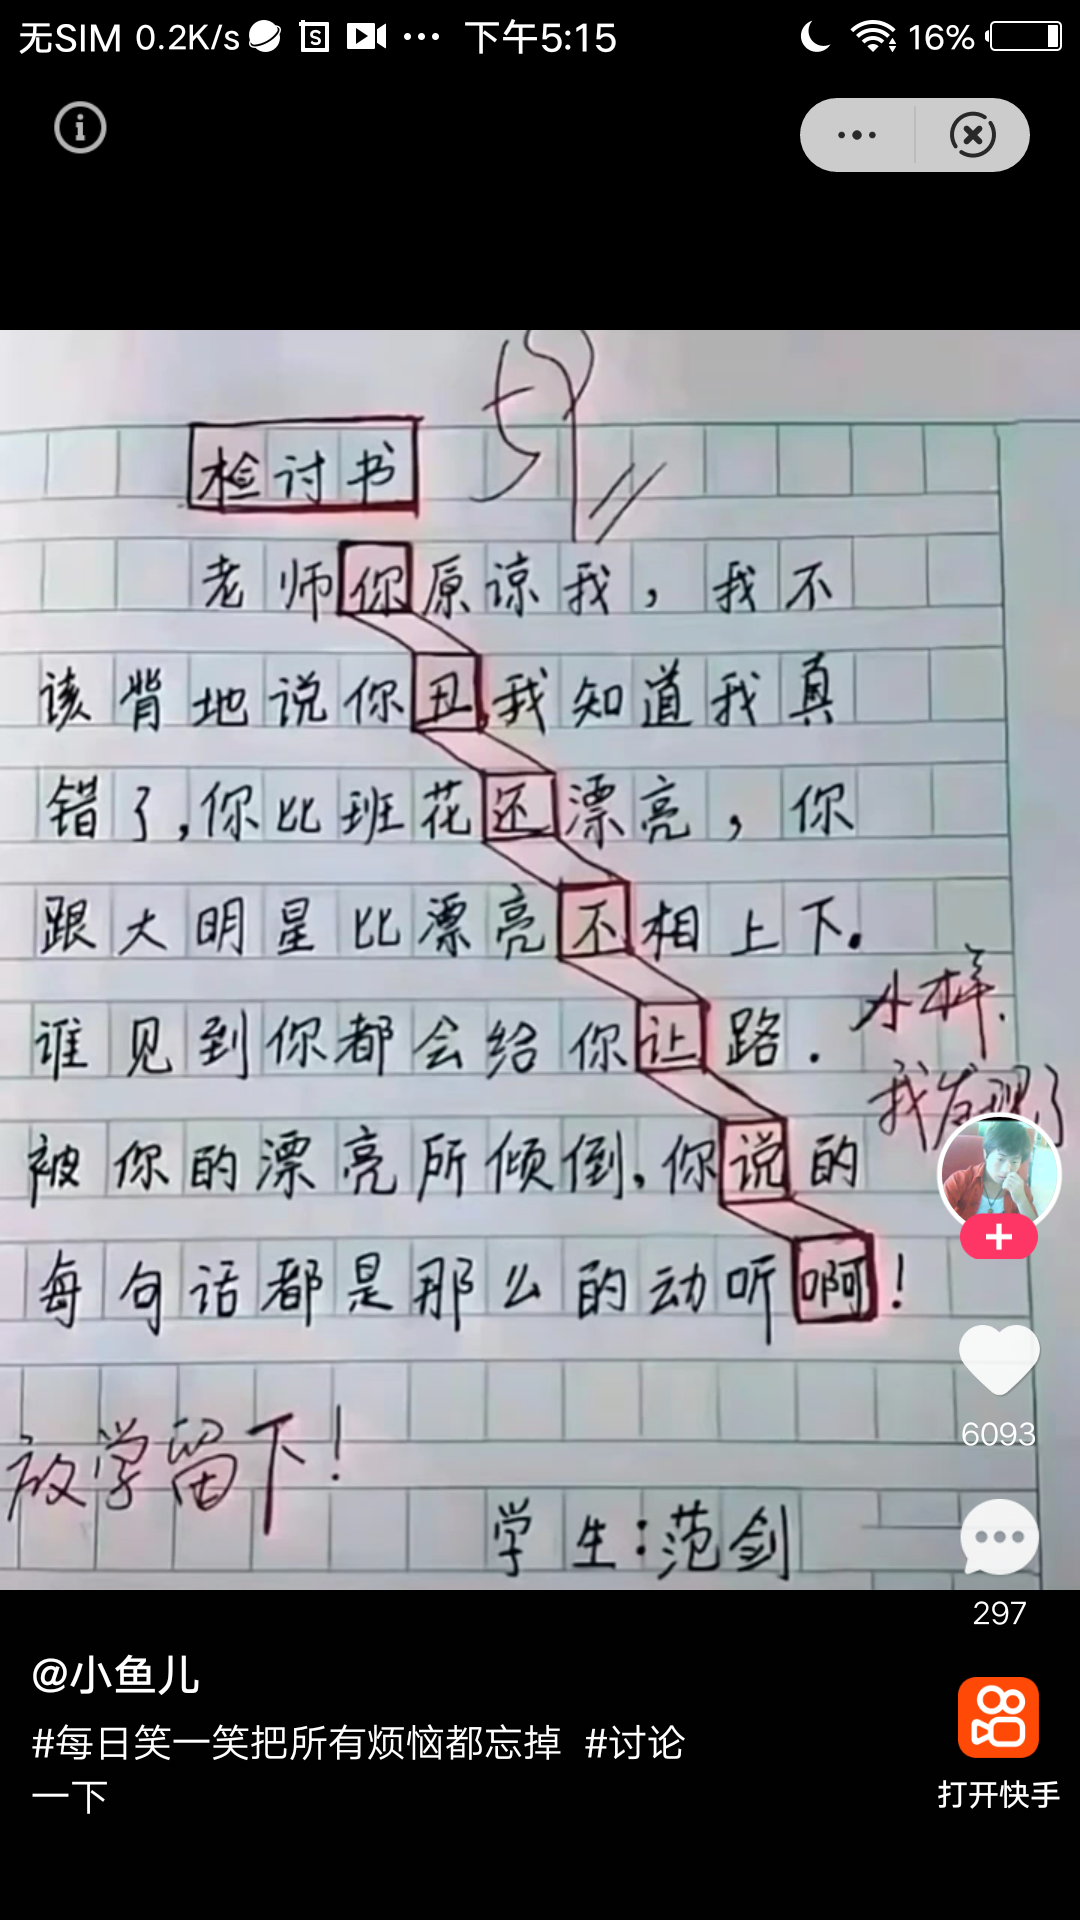 无SIM 0.2K/s 下午5:15 16%
检讨书
老师你原谅我，我不
该背地说你丑,我知道我真
错了,你比班花还漂亮，你
跟大明星比漂亮不相上下.
谁见到你都会给你让路.
小样.
我发现了
被你的漂亮所倾倒,你说的
每句话都是那么的动听啊!
放学留下!
学生:范剑
6093
297
@小鱼儿
#每日笑一笑把所有烦恼都忘掉 #讨论
一下
打开快手